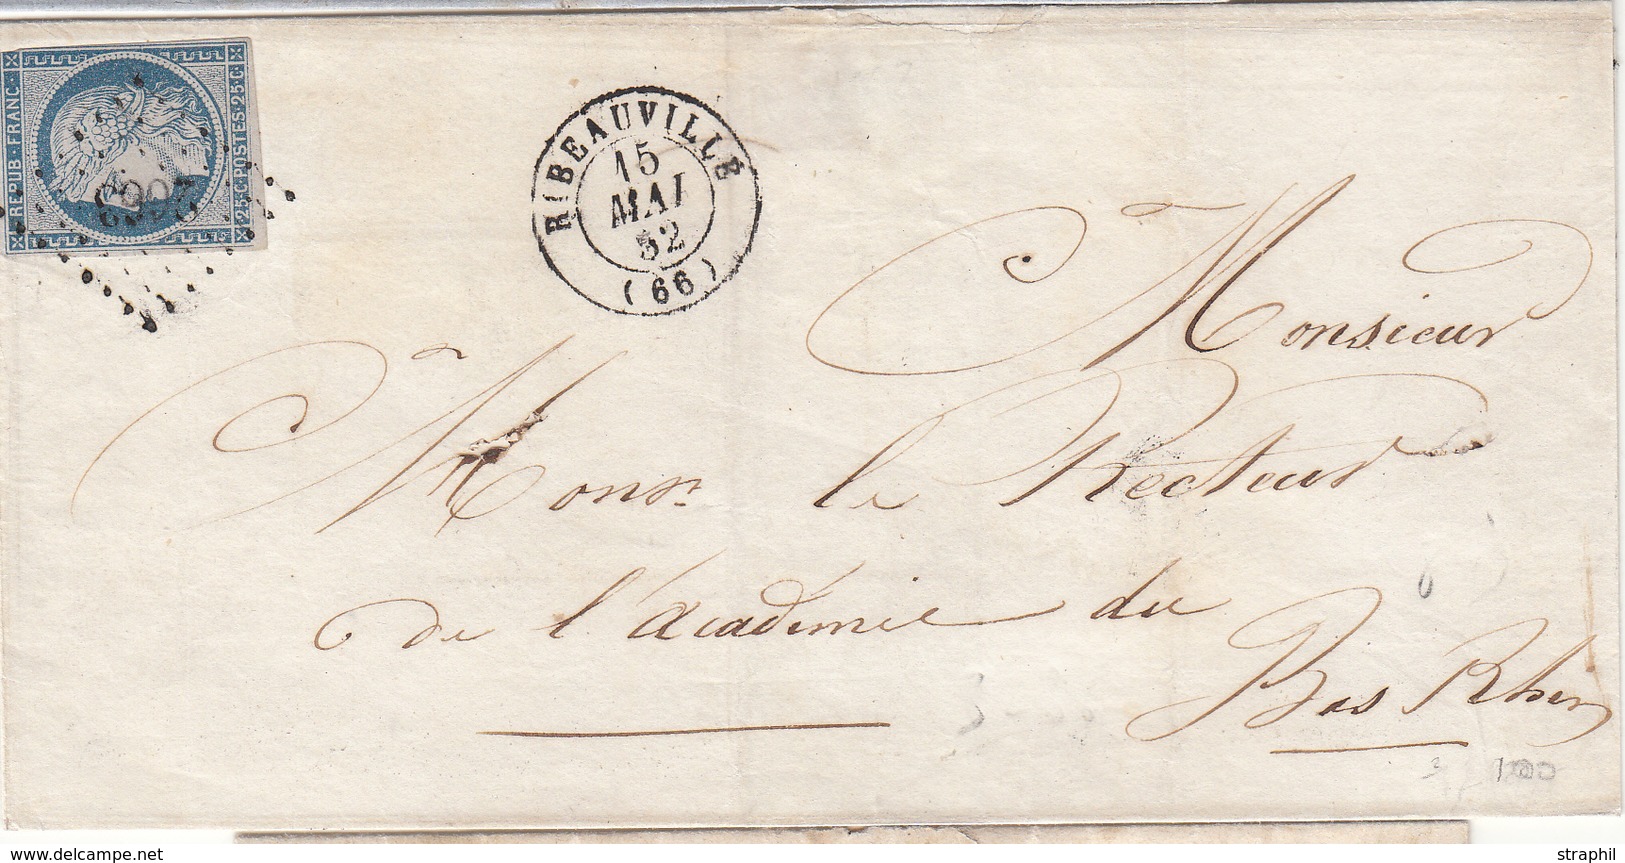 REPUB · FRANC ·
25·C·POSTES·25·C·
RIBEAUVILLE
15
MAI
52
(66)
Monsieur
Monsr le Recteur
de l'académie du
Bas Rhin
delcampe.net
straphil